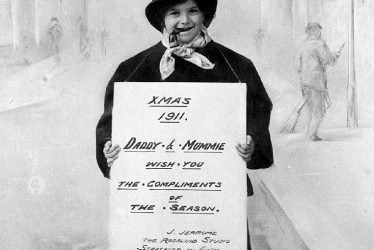 XMAS
1911.
DADDY & MUMMIE
WISH YOU
THE COMPLIMENTS
OF
THE SEASON.
J. JERROME
THE ROSALIND STUDIO
STRATFORD ON AVON